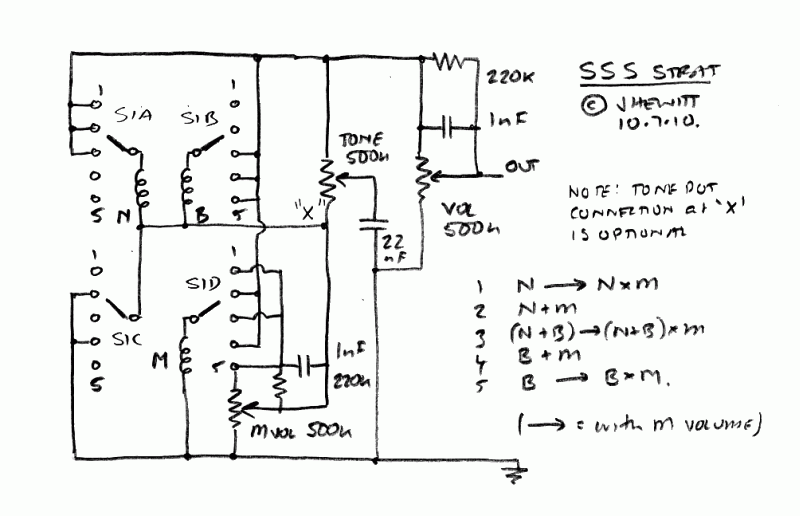 SSS STRAT
© JHEWITT
10.7.10.
220K
1nF
OUT
VOL
500K
TONE
500K
"X"
22
nF
NOTE: TONE POT
CONNECTION at 'X'
IS OPTIONAL
1
S1A
S1B
1
5
N
B
5
1
S1C
5
1
S1D
M
5
1nF
220K
M VOL 500K
1 N → N×M
2 N+M
3 (N+B) → (N+B)×M
4 B+M
5 B → B×M.
(→ = with M VOLUME)